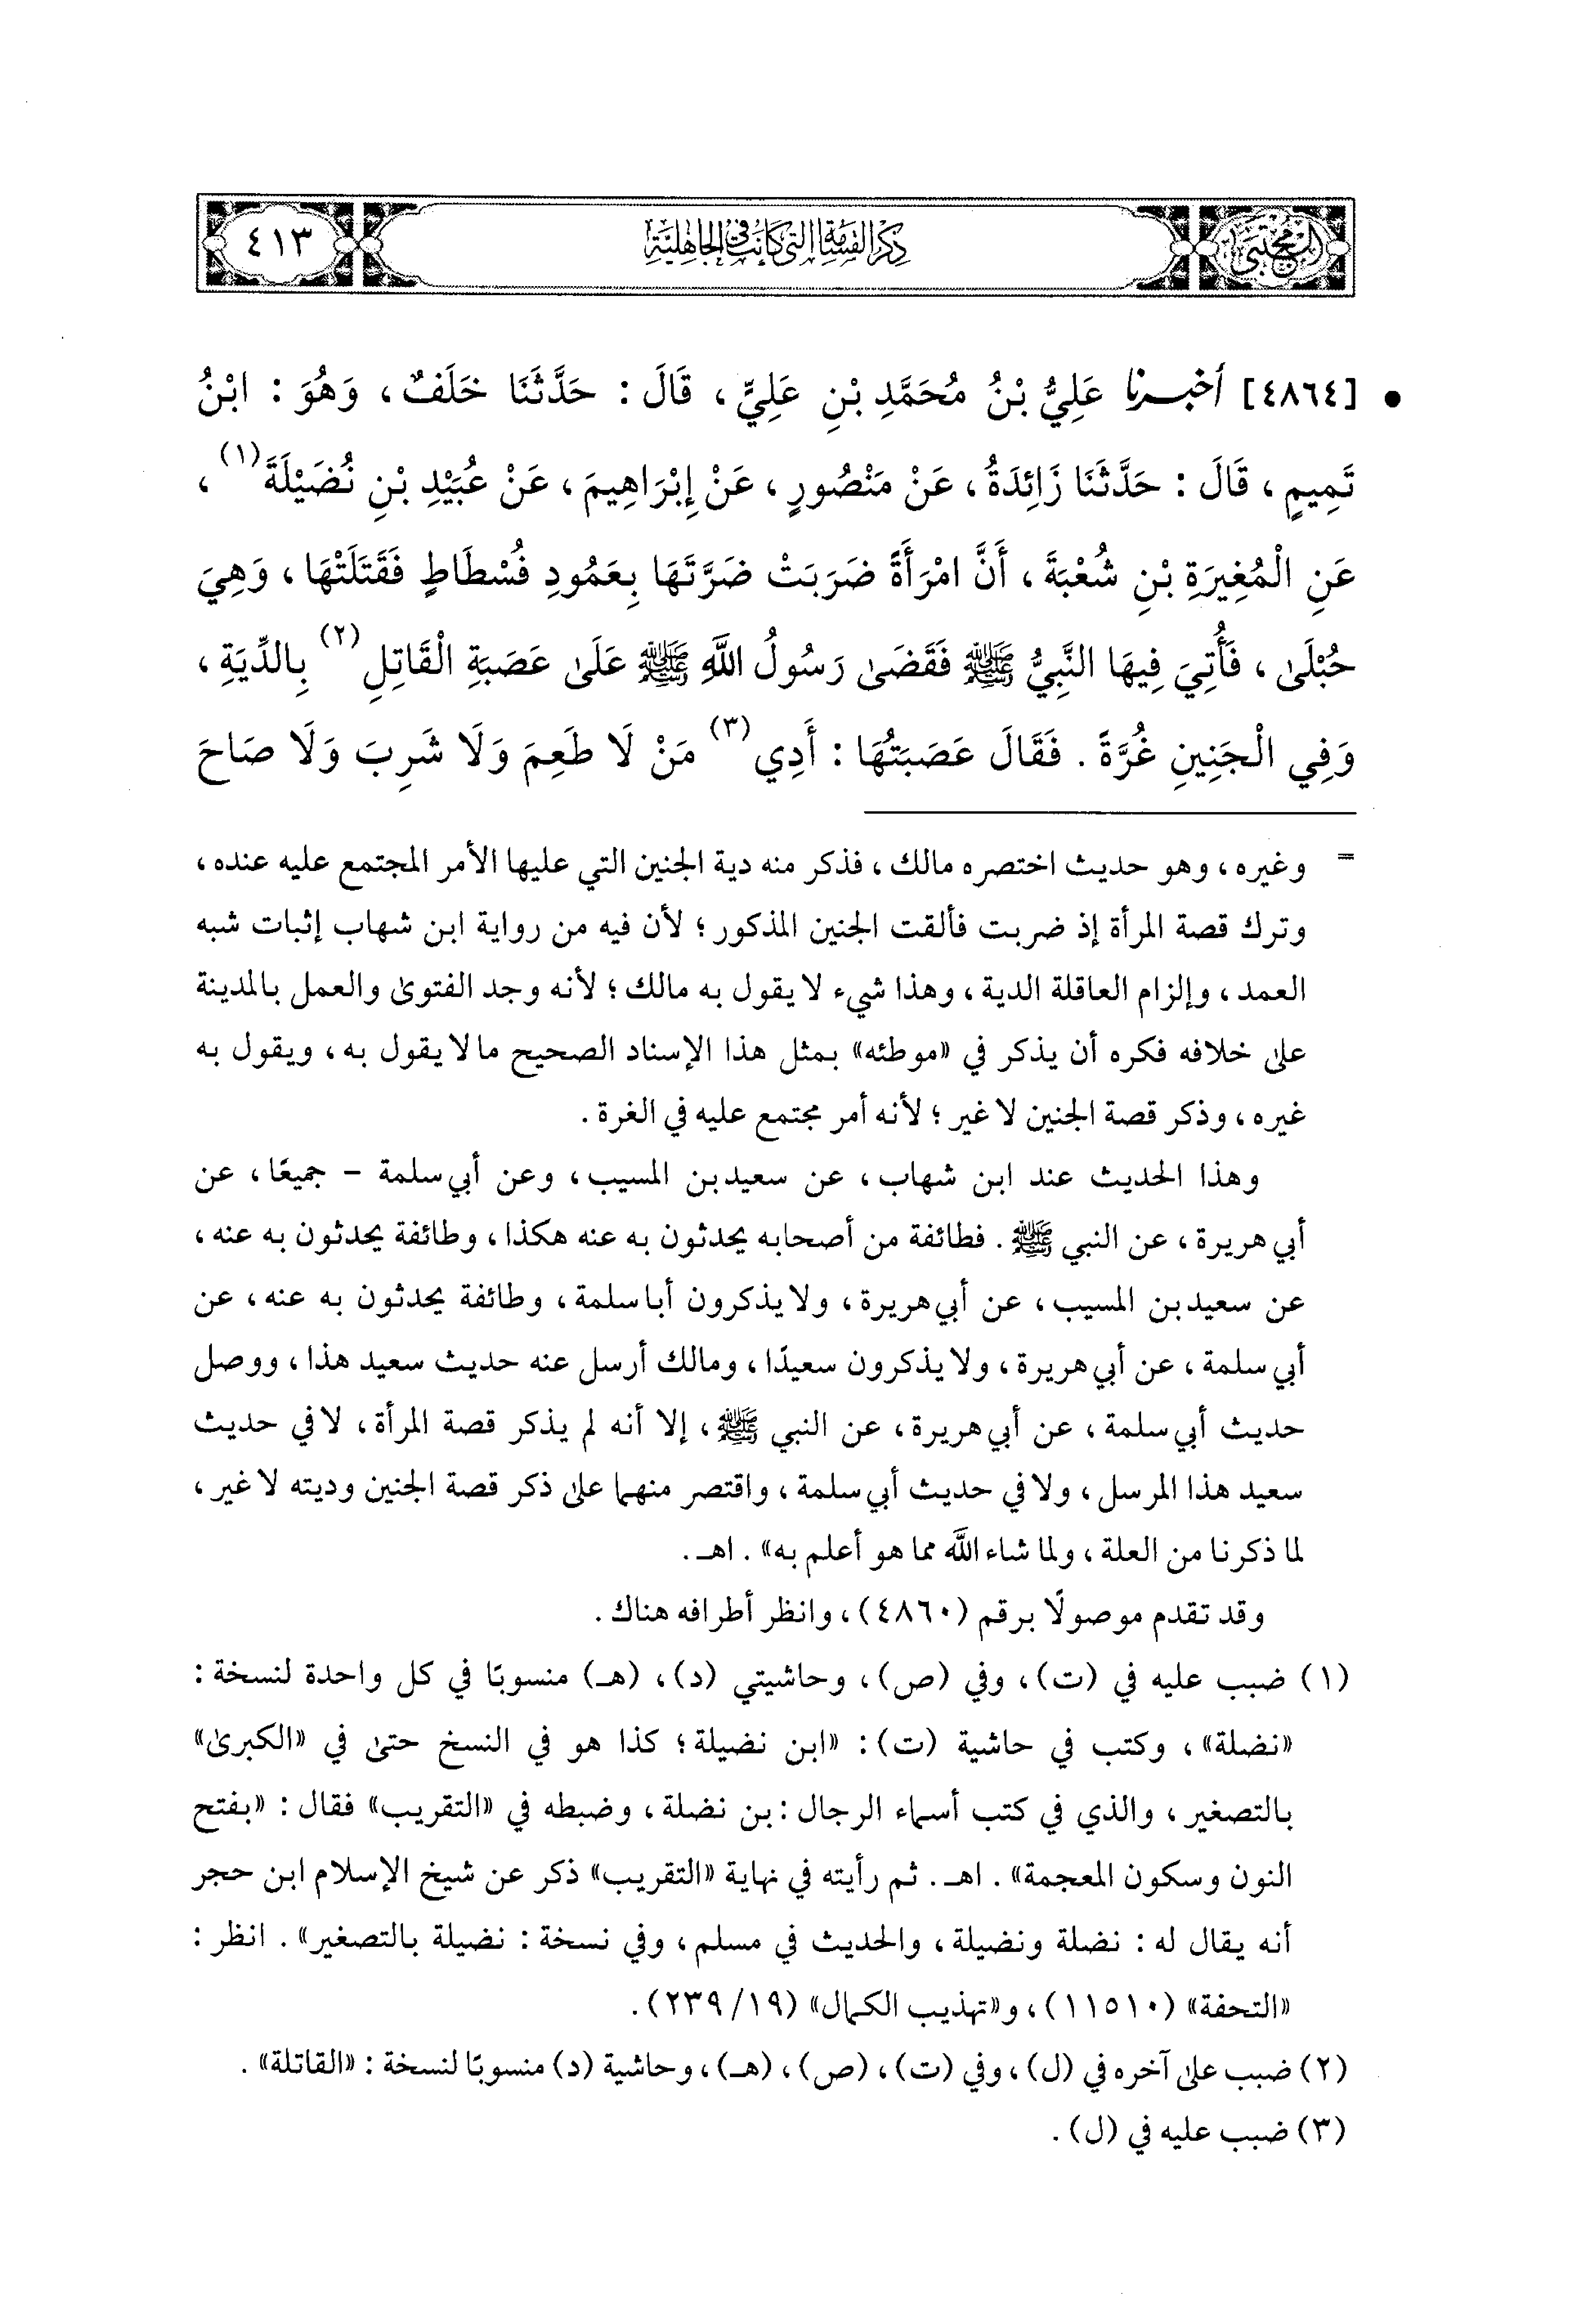 المجتبى
ذكر القسامة التي كانت في الجاهلية
٤١٣
• [٤٨٦٤] أخبرنا عَلِيُّ بْنُ مُحَمَّدِ بْنِ عَلِيٍّ ، قَالَ : حَدَّثَنَا خَلَفٌ ، وَهُوَ : ابْنُ
تَمِيمٍ ، قَالَ : حَدَّثَنَا زَائِدَةُ ، عَنْ مَنْصُورٍ ، عَنْ إِبْرَاهِيمَ ، عَنْ عُبَيْدِ بْنِ نُضَيْلَةَ (١) ،
عَنِ الْمُغِيرَةِ بْنِ شُعْبَةَ ، أَنَّ امْرَأَةً ضَرَبَتْ ضَرَّتَهَا بِعَمُودِ فُسْطَاطٍ فَقَتَلَتْهَا ، وَهِيَ
حُبْلَىٰ ، فَأُتِيَ فِيهَا النَّبِيُّ ﷺ فَقَضَىٰ رَسُولُ اللَّهِ ﷺ عَلَىٰ عَصَبَةِ الْقَاتِلِ (٢) بِالدِّيَةِ ،
وَفِي الْجَنِينِ غُرَّةً . فَقَالَ عَصَبَتُهَا : أَدِي (٣) مَنْ لَا طَعِمَ وَلَا شَرِبَ وَلَا صَاحَ
= وغيره ، وهو حديث اختصره مالك ، فذكر منه دية الجنين التي عليها الأمر المجتمع عليه عنده ،
وترك قصة المرأة إذ ضربت فألقت الجنين المذكور ؛ لأن فيه من رواية ابن شهاب إثبات شبه
العمد ، وإلزام العاقلة الدية ، وهذا شيء لا يقول به مالك ؛ لأنه وجد الفتوىٰ والعمل بالمدينة
علىٰ خلافه فكره أن يذكر في «موطئه» بمثل هذا الإسناد الصحيح ما لا يقول به ، ويقول به
غيره ، وذكر قصة الجنين لا غير ؛ لأنه أمر مجتمع عليه في الغرة .
وهذا الحديث عند ابن شهاب ، عن سعيد بن المسيب ، وعن أبي سلمة - جميعًا ، عن
أبي هريرة ، عن النبي ﷺ . فطائفة من أصحابه يحدثون به عنه هكذا ، وطائفة يحدثون به عنه ،
عن سعيد بن المسيب ، عن أبي هريرة ، ولا يذكرون أبا سلمة ، وطائفة يحدثون به عنه ، عن
أبي سلمة ، عن أبي هريرة ، ولا يذكرون سعيدًا ، ومالك أرسل عنه حديث سعيد هذا ، ووصل
حديث أبي سلمة ، عن أبي هريرة ، عن النبي ﷺ ، إلا أنه لم يذكر قصة المرأة ، لا في حديث
سعيد هذا المرسل ، ولا في حديث أبي سلمة ، واقتصر منهما علىٰ ذكر قصة الجنين وديته لا غير ،
لما ذكرنا من العلة ، ولما شاء اللَّه مما هو أعلم به» . اهـ .
وقد تقدم موصولًا برقم (٤٨٦٠) ، وانظر أطرافه هناك .
(١) ضبب عليه في (ت) ، وفي (ص) ، وحاشيتي (د) ، (هـ) منسوبًا في كل واحدة لنسخة :
«نضلة» ، وكتب في حاشية (ت) : «ابن نضيلة ؛ كذا هو في النسخ حتىٰ في «الكبرىٰ»
بالتصغير ، والذي في كتب أسماء الرجال : بن نضلة ، وضبطه في «التقريب» فقال : «بفتح
النون وسكون المعجمة» . اهـ . ثم رأيته في نهاية «التقريب» ذكر عن شيخ الإسلام ابن حجر
أنه يقال له : نضلة ونضيلة ، والحديث في مسلم ، وفي نسخة : نضيلة بالتصغير» . انظر :
«التحفة» (١١٥١٠) ، و«تهذيب الكمال» (١٩/ ٢٣٩) .
(٢) ضبب علىٰ آخره في (ل) ، وفي (ت) ، (ص) ، (هـ) ، وحاشية (د) منسوبًا لنسخة : «القاتلة» .
(٣) ضبب عليه في (ل) .